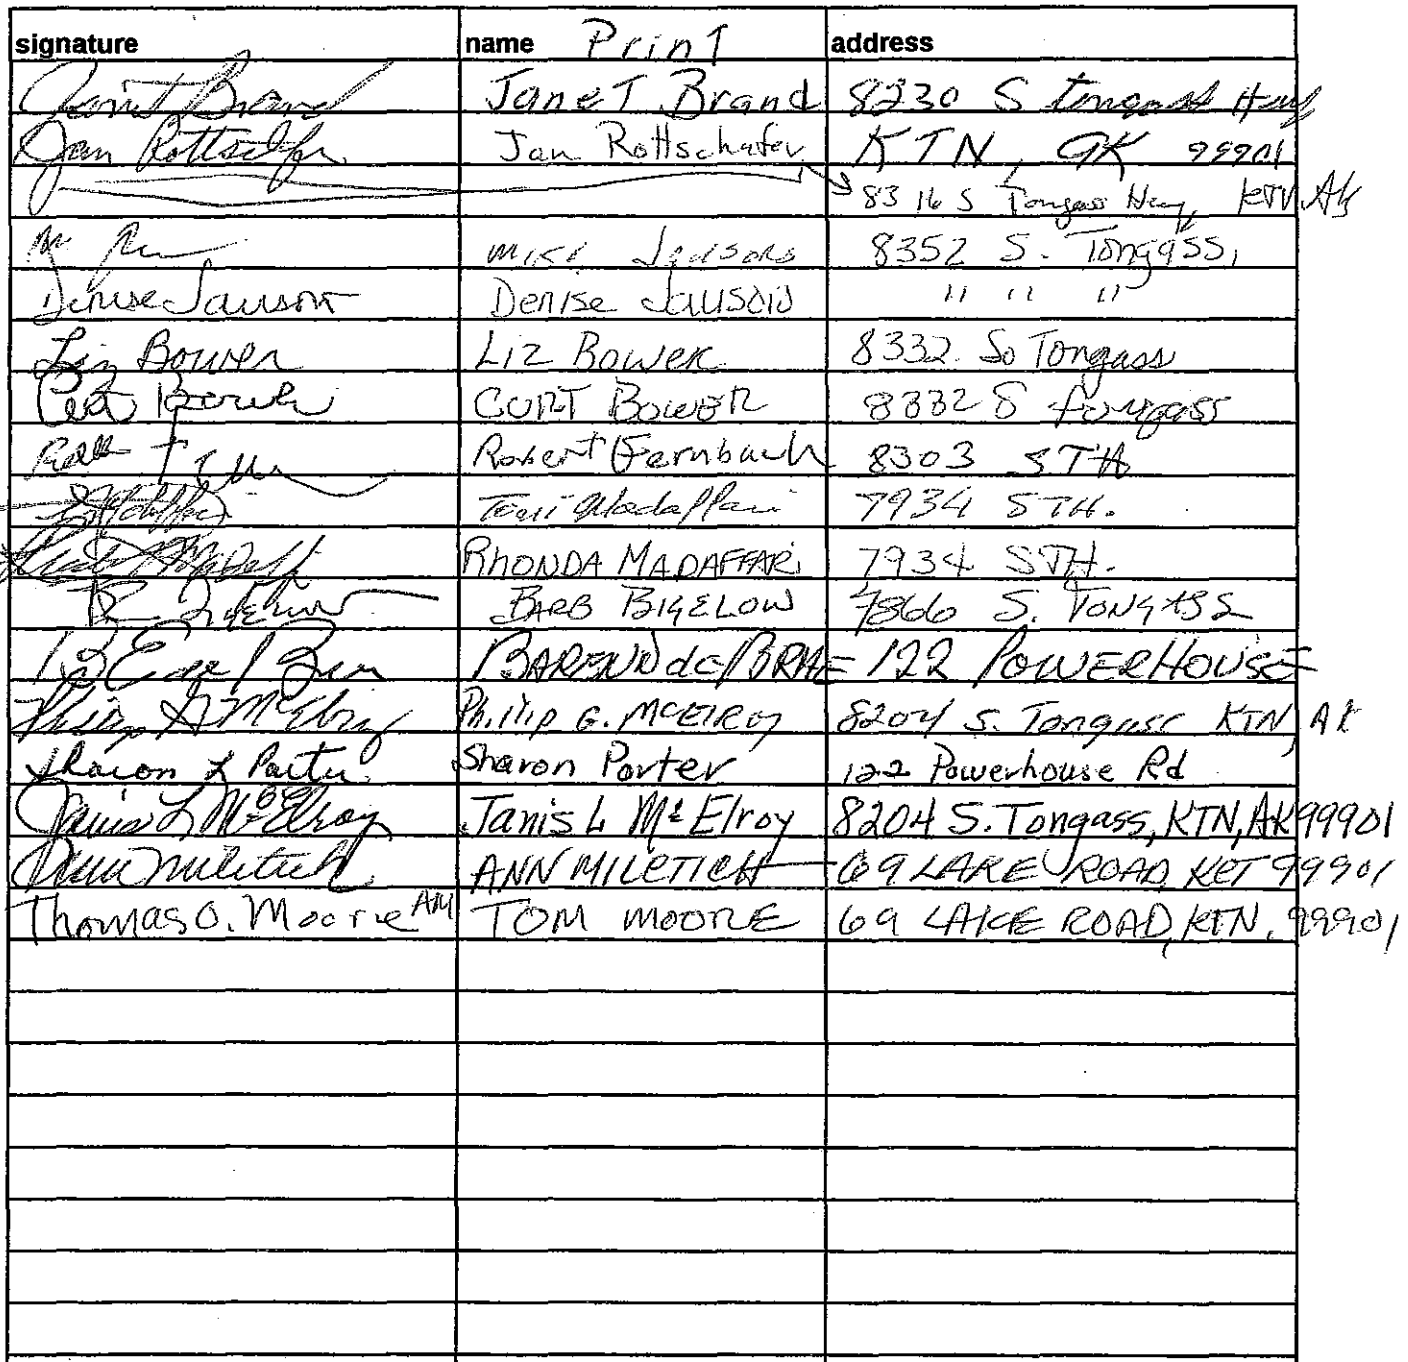 signature name Print address
Janet Brand Janet Brand 8230 S Tongass Hwy
Jan Rottschafer Jan Rottschafer KTN, AK 99901
8316 S Tongass Hwy, KTN AK
Mike 8352 S. Tongass,
Denise Jauson Denise Jauson " " "
Liz Bower Liz Bower 8332 So Tongass
Curt Bower CURT BOWER 8332 S Tongass
Robert Fernbach 8303 STH
Madaffari 7934 STH.
RHONDA MADAFFARI 7934 STH.
BARB BIGELOW 7866 S. TONGASS
122 POWERHOUSE
Philip G McElroy Philip G. McElroy 8204 S. Tongass KTN, AK
Sharon L Porter Sharon Porter 122 Powerhouse Rd
Janis L McElroy Janis L McElroy 8204 S. Tongass, KTN, AK 99901
Ann Miletich ANN MILETICH 69 LAKE ROAD, KET 99901
Thomas O. Moore AM TOM MOORE 69 LAKE ROAD, KTN, 99901